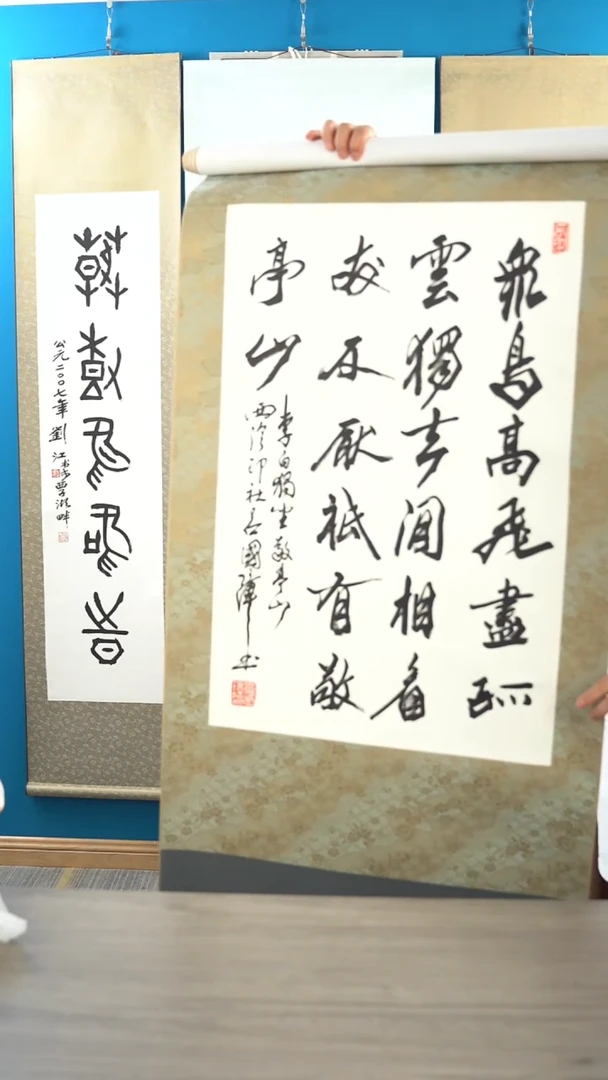 眾鳥高飛盡孤
雲獨去閒相看
兩不厭祗有敬
亭山
李白獨坐敬亭山
西泠印社呂國璋书
公元二〇〇七年劉江书